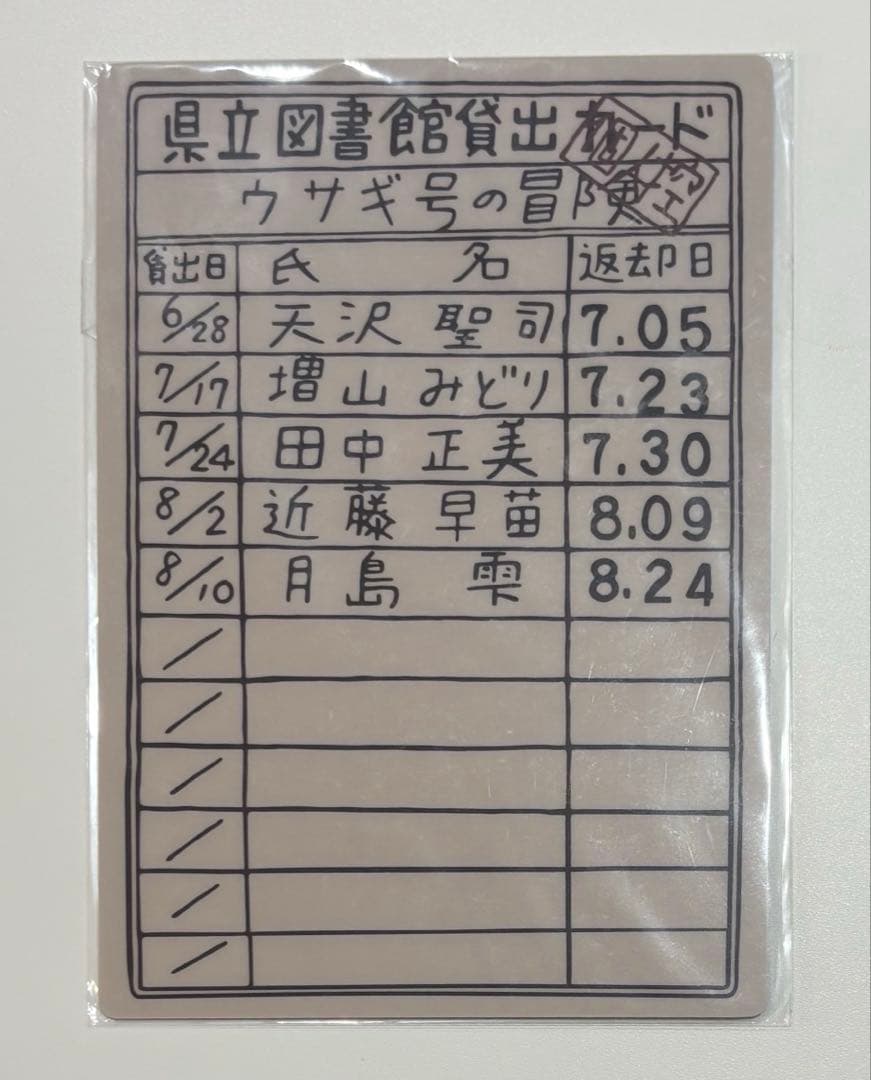 県立図書館貸出カード
ウサギ号の冒険
貸出日 氏名 返却日
6/28 天沢 聖司 7.05
7/17 増山 みどり 7.23
7/24 田中 正美 7.30
8/2 近藤 早苗 8.09
8/10 月島 雫 8.24
/
/
/
/
/
/